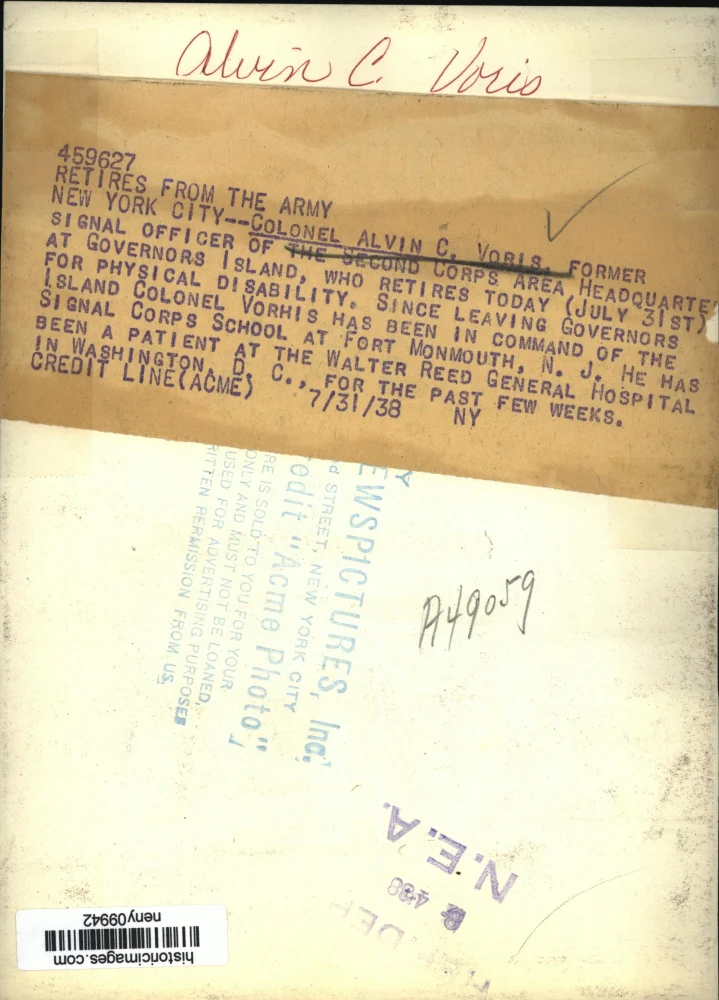 Alvin C. Voris
459627
RETIRES FROM THE ARMY
NEW YORK CITY--COLONEL ALVIN C. VORIS, FORMER
SIGNAL OFFICER OF THE SECOND CORPS AREA HEADQUARTE
AT GOVERNORS ISLAND, WHO RETIRES TODAY (JULY 31ST)
FOR PHYSICAL DISABILITY. SINCE LEAVING GOVERNORS
ISLAND COLONEL VORHIS HAS BEEN IN COMMAND OF THE
SIGNAL CORPS SCHOOL AT FORT MONMOUTH, N. J. HE HAS
BEEN A PATIENT AT THE WALTER REED GENERAL HOSPITAL
IN WASHINGTON, D. C., FOR THE PAST FEW WEEKS.
CREDIT LINE(ACME) 7/31/38 NY
Y
EWSPICTURES, Inc.
d STREET, NEW YORK CITY
edit "Acme Photo";
RE IS SOLD TO YOU FOR YOUR
ONLY AND MUST NOT BE LOANED,
USED FOR ADVERTISING PURPOSES
RITTEN PERMISSION FROM US.
A49059
N.E.A.
historicimages.com
neny09942